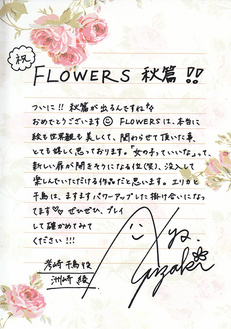 祝
FLOWERS 秋篇!!
ついに!! 秋篇が出るんですね
おめでとうございます☺ FLOWERSは、本当に
絵も世界観も美しくて、関わらせて頂いた事、
とても嬉しく思っております。「女の子っていいな」って、
新しい扉が開きそうになる位(笑)、没入して
楽しんでいただける作品だと思います。エリカと
千鳥は、ますますパワーアップした掛け合いになっ
てます♡ ぜひぜひ、プレイ
して確かめてみて
ください!!!
考崎千鳥役
洲崎綾
Aya.
Suzaki